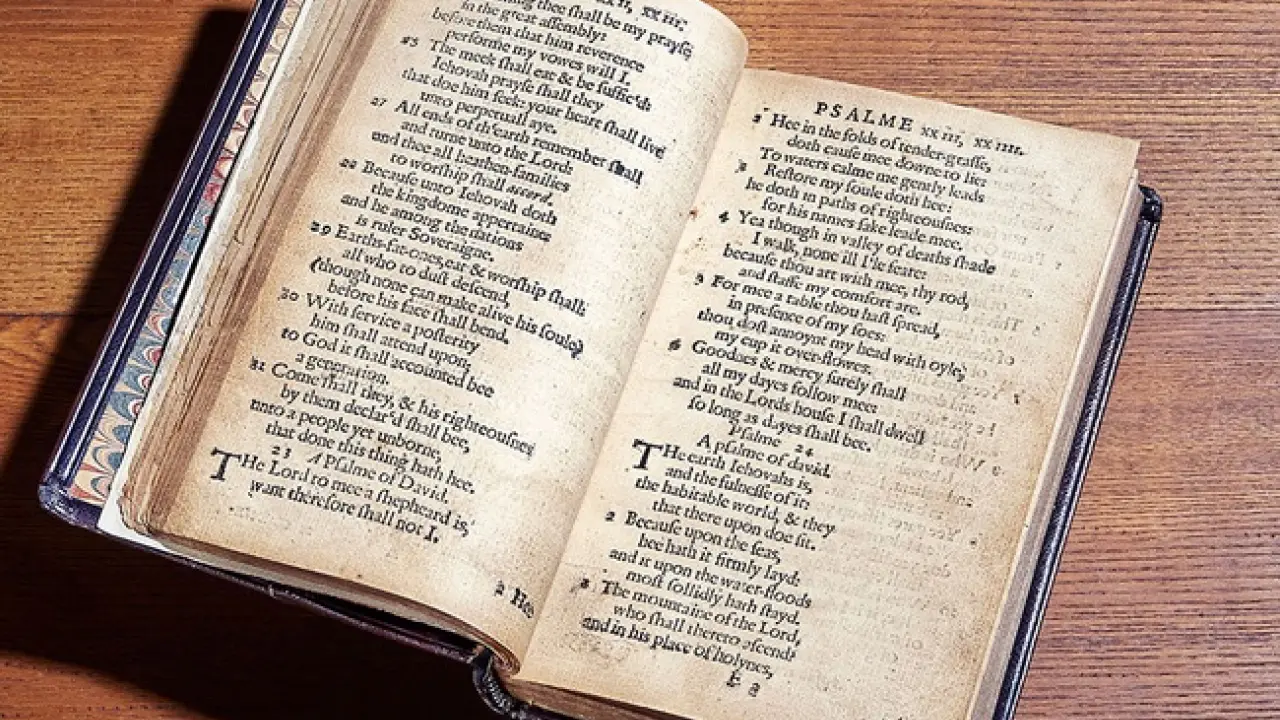 XXII, XXIII.
thee shall be my prayse
in the great assembly:
before them that him reverence
performe my vowes will I.
The meek shall eat & be suffic'd:
Iehovah prayse shall they
that doe him seek: your heart shall live
unto perpetuall aye.
27 All ends of th'earth remember shall
and turne unto the Lord:
and thee all heathen-families
to worship shall accord.
Because unto Iehovah doth
the kingdome appertaine:
and he among the nations
is ruler Soveraigne.
29 Earths-fat-ones, eat & worship shall:
all who to dust descend,
(though none can make alive his soule)
before his face shall bend.
30 With service a posterity
him shall attend upon;
to God it shall accounted bee
a generation.
31 Come shall they, & his righteousnes
by them declar'd shall bee,
unto a people yet unborne,
that done this thing hath hee.
23 A Psalme of David.
THe Lord to mee a shepheard is,
want therefore shall not I.
2 Hee
PSALME XXIII, XXIIII.
2 Hee in the folds of tender-grasse,
doth cause mee downe to lie:
To waters calme me gently leads
3 Restore my soule doth hee:
he doth in paths of righteousnes:
for his names sake leade mee.
4 Yea though in valley of deaths shade
I walk, none ill I'le feare:
because thou art with mee, thy rod,
and staffe my comfort are.
5 For mee a table thou hast spread,
in presence of my foes:
thou dost annoynt my head with oyle,
my cup it over-flowes.
6 Goodnes & mercy surely shall
all my dayes follow mee:
and in the Lords house I shall dwell
so long as dayes shall bee.
Psalme 24
A psalme of david.
THe earth Iehovahs is,
and the fulnesse of it:
the habitable world, & they
that there upon doe sit.
2 Because upon the seas,
hee hath it firmly layd:
and it upon the water-floods
most sollidly hath stayd.
3 The mountaine of the Lord,
who shall thereto ascend?
and in his place of holynes,
E 3